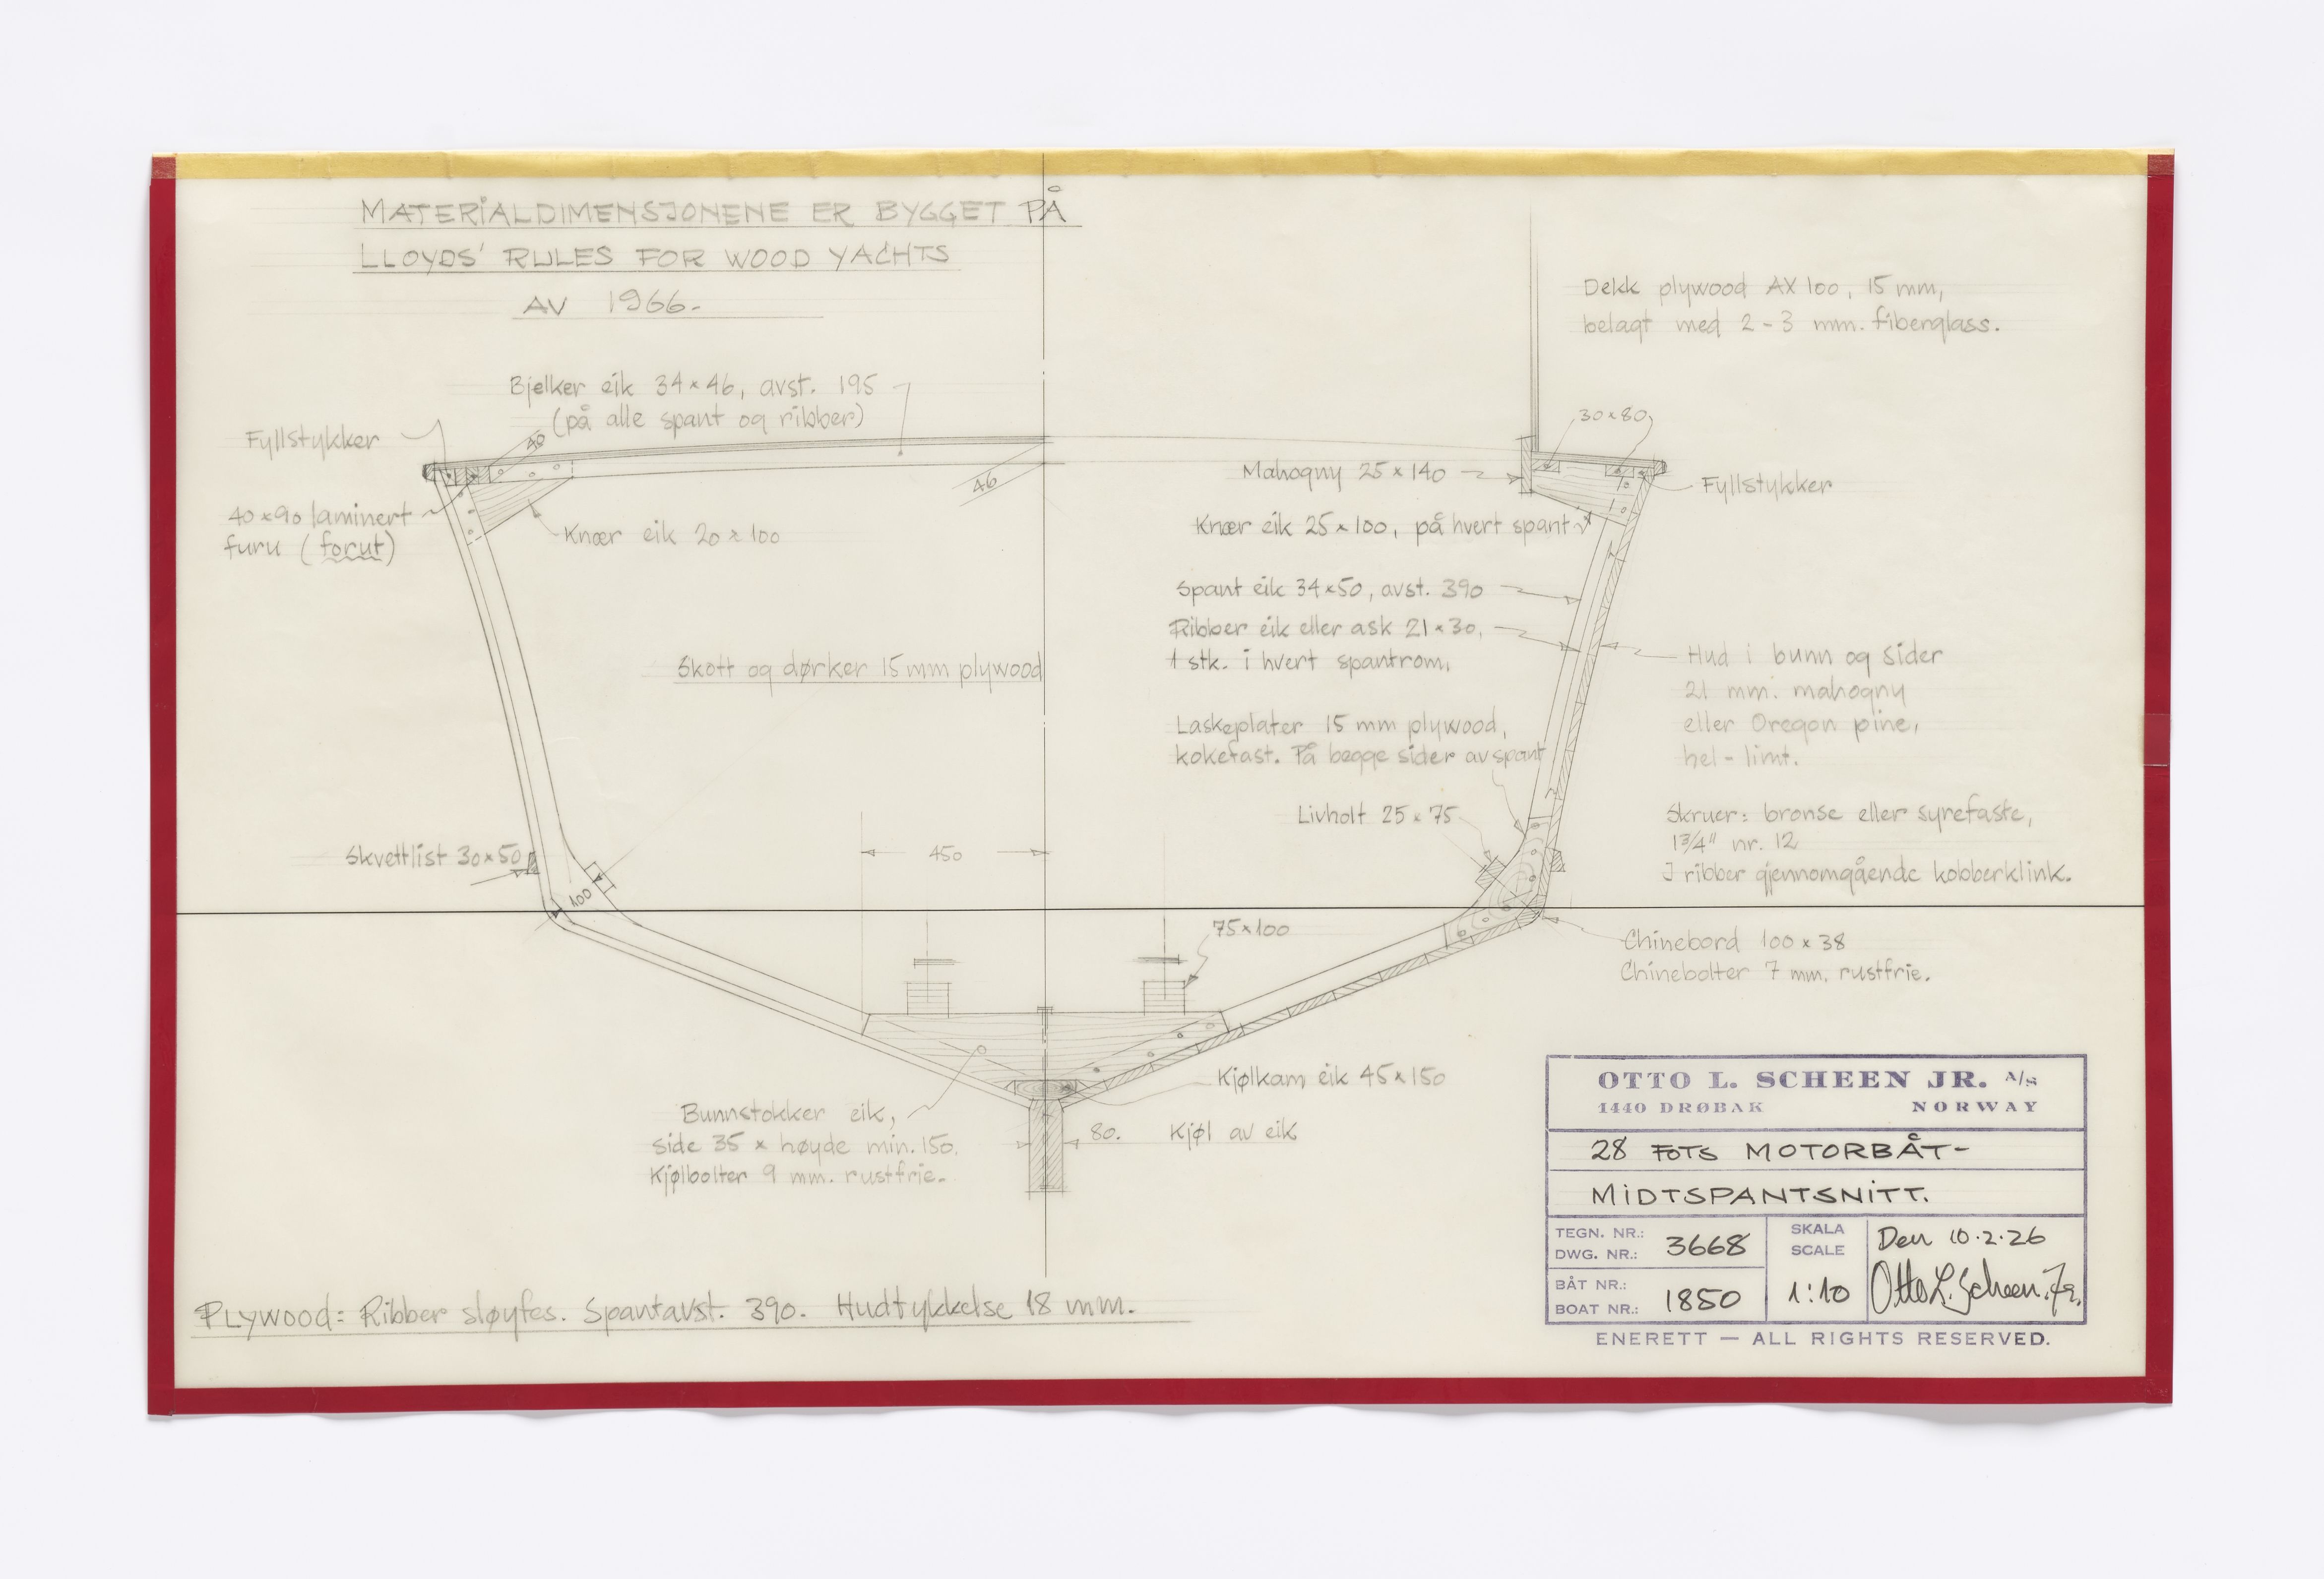 MATERIALDIMENSJONENE ER BYGGET PÅ
LLOYDS' RULES FOR WOOD YACHTS
AV 1966.
Dekk plywood AX 100, 15 mm,
belagt med 2-3 mm. fiberglass.
Bjelker eik 34×46, avst. 195
(på alle spant og ribber)
Fyllstykker
40
46
30×80
Mahogny 25×140
Fyllstykker
40×90 laminert
furu (forut)
Knær eik 20×100
Knær eik 25×100, på hvert spant
Spant eik 34×50, avst. 390
Ribber eik eller ask 21×30,
1 stk. i hvert spantrom,
Skott og dørker 15 mm plywood
Hud i bunn og sider
21 mm. mahogny
eller Oregon pine,
hel-limt.
Laskeplater 15 mm plywood,
kokefast. På begge sider av spant
Livholt 25×75
Skruer: bronse eller syrefaste,
1 3/4" nr. 12
I ribber gjennomgående kobberklink.
Skvettlist 30×50
450
100
75×100
Chinebord 100×38
Chinebolter 7 mm. rustfrie.
Kjølkam eik 45×150
Bunnstokker eik,
side 35 × høyde min. 150.
Kjølbolter 9 mm. rustfrie.
80.
Kjøl av eik
PLYWOOD: Ribber sløyfes. Spantavst. 390. Hudtykkelse 18 mm.
OTTO L. SCHEEN JR. A/S
1440 DRØBAK NORWAY
28 FOTS MOTORBÅT-
MIDTSPANTSNITT.
TEGN. NR.:
DWG. NR.: 3668
SKALA
SCALE
1:10
Den 10.2.26
Otto L. Scheen. Jr.
BÅT NR.:
BOAT NR.: 1850
ENERETT — ALL RIGHTS RESERVED.